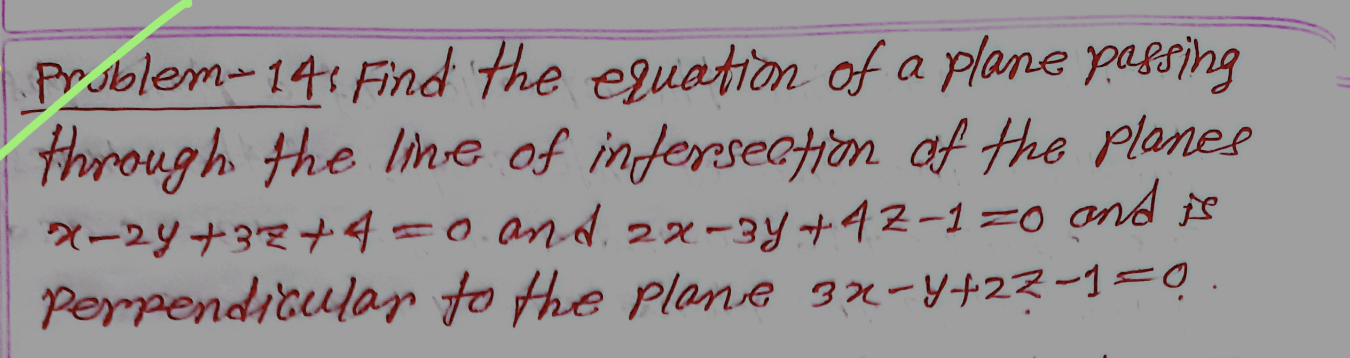 Problem-14: Find the equation of a plane passing
through the line of intersection of the planes
x-2y+3z+4=0 and 2x-3y+4z-1=0 and is
perpendicular to the plane 3x-y+2z-1=0.